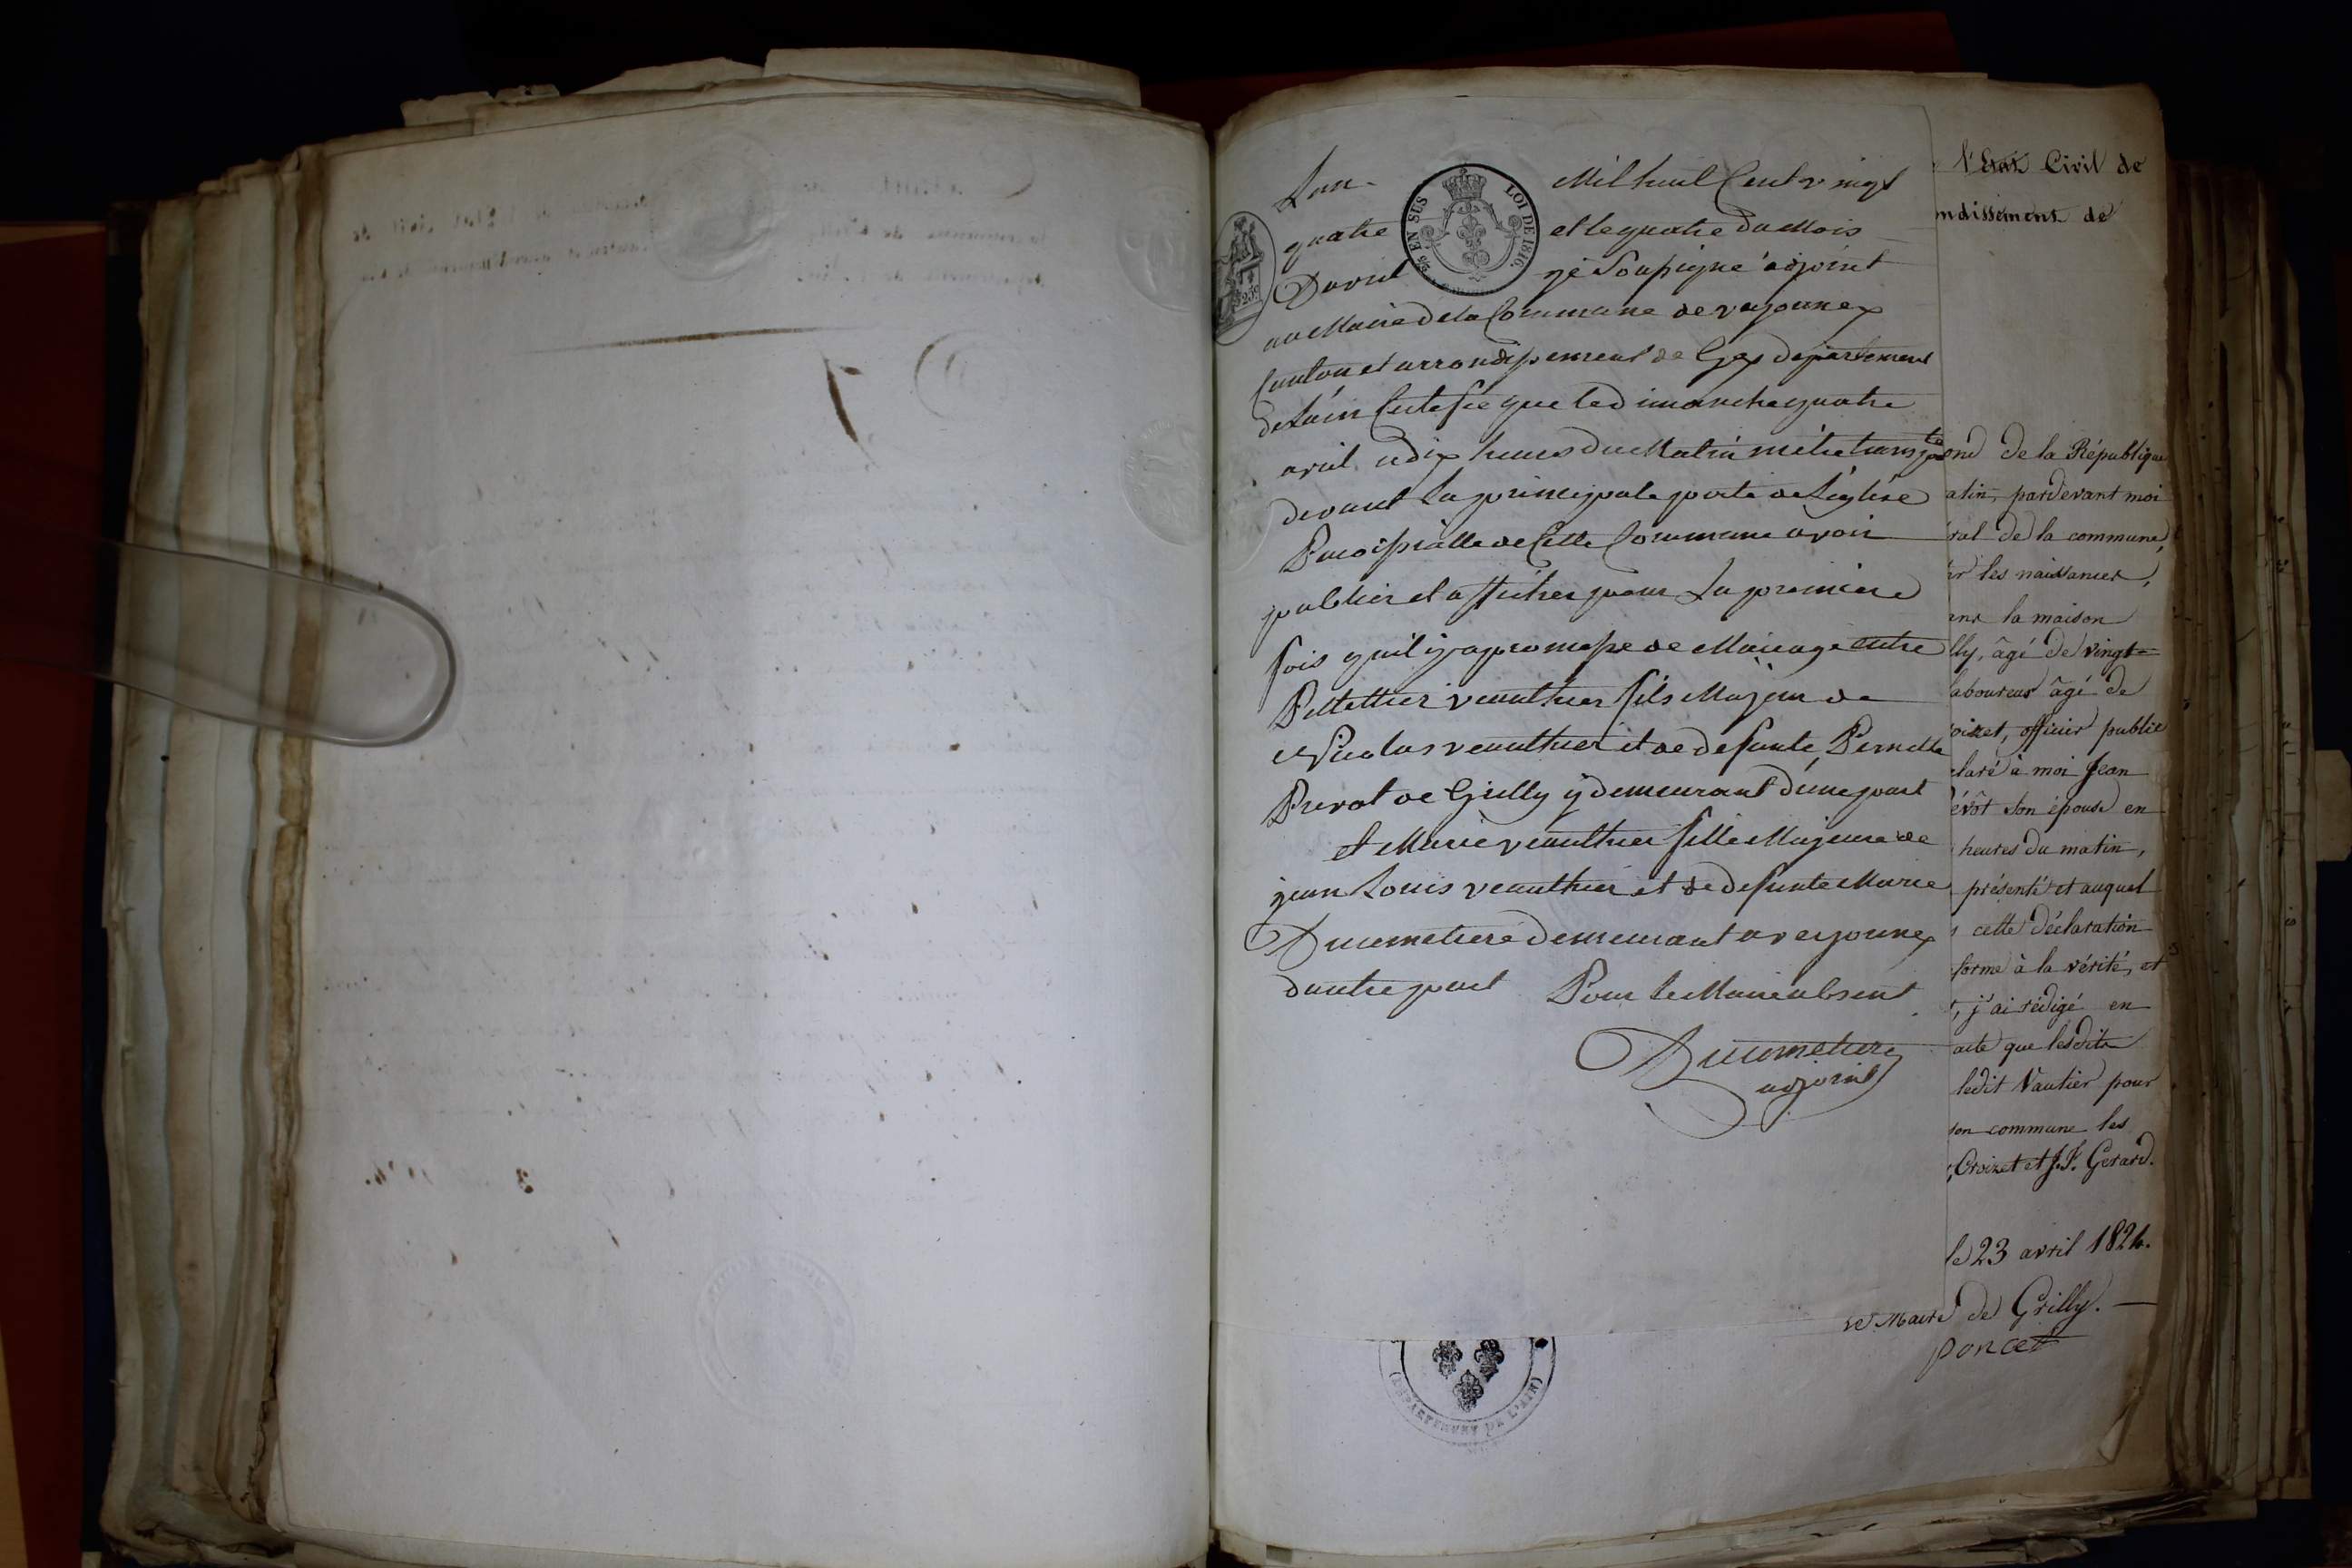 Lan Mil huit Cent vingt
quatre et le quatre du Mois
Davril je Soussigné adjoint
au Maire de la Commune de vezonnex
Canton et arrondissement de Gex departement
de Lain Certefie que le dimanche quatre
avril a dix heures du Matin métre transporte
devant La principale porte de Léglise
Paroissialle de Cette Commune avoir
publier et afficher pour La premiere
fois quil y a promesse de Mariage entre
Pelletier veauthier fils Majeur de
Nicolas veauthier et de defunte Pernette
Prevot de Grilly y demeurant d'une part
et Marie veauthier fille Majeure de
jean Louis veauthier et de defunte Marie
Ducimetiere demeurant a vezonnex
dautre part Pour le Maire absent
Ducimetiere
adjoint
EN SUS LOI DE 1816.
25c
l'État Civil de
ndissement de
ond de la République
atin, pardevant moi
ral de la commune,
les naissances,
la maison
lly, âgé de vingt=
laboureur âgé de
oizet, officier public
claré à moi Jean
évôt son épouse en
heures du matin,
présenté et auquel
cette déclaration
forme à la vérité, et
, j'ai rédigé en
acte que lesdits
ledit Vautier pour
son commune les
Croizet et J.J. Gerard.
le 23 avril 1824.
le Maire de Grilly.
poncet
(DÉPARTEMENT DE L'AIN)